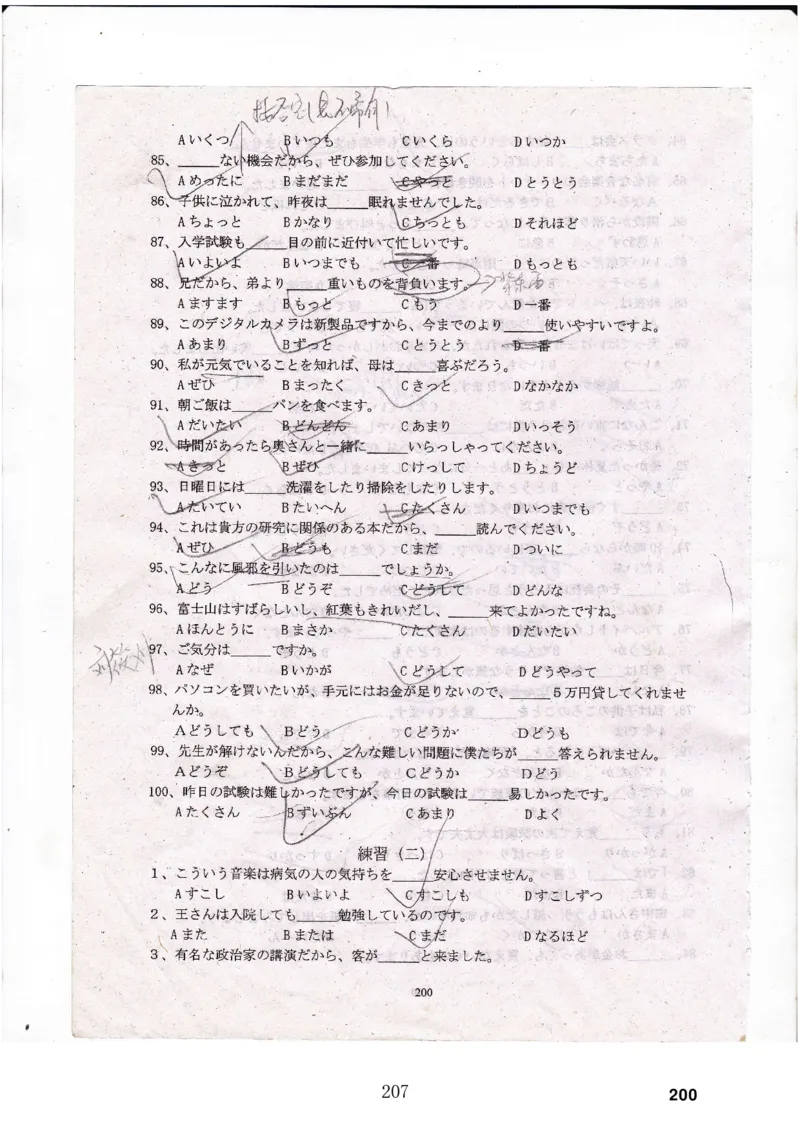 Aいくつ Bいつも Cいくら Dいつか
85、_____ない機会だから、ぜひ参加してください。
Aめったに Bまだまだ Cやっと Dとうとう
86、子供に泣かれて、昨夜は_____眠れませんでした。
Aちょっと Bかなり Cちっとも Dそれほど
87、入学試験も_____目の前に近付いて忙しいです。
Aいよいよ Bいつまでも C一番 Dもっとも
88、兄だから、弟より_____重いものを背負います。
Aますます Bもっと Cもう D一番
89、このデジタルカメラは新製品ですから、今までのより_____使いやすいですよ。
Aあまり Bずっと Cとうとう D一番
90、私が元気でいることを知れば、母は_____喜ぶだろう。
Aぜひ Bまったく Cきっと Dなかなか
91、朝ご飯は_____パンを食べます。
Aだいたい Bどんどん Cあまり Dいっそう
92、時間があったら奥さんと一緒に_____いらっしゃってください。
Aきっと Bぜひ Cけっして Dちょうど
93、日曜日には_____洗濯をしたり掃除をしたりします。
Aたいてい Bたいへん Cたくさん Dいつまでも
94、これは貴方の研究に関係のある本だから、_____読んでください。
Aぜひ Bどうも Cまだ Dついに
95、こんなに風邪を引いたのは_____でしょうか。
Aどう Bどうぞ Cどうして Dどんな
96、富士山はすばらしいし、紅葉もきれいだし、_____来てよかったですね。
Aほんとうに Bまさか Cたくさん Dだいたい
97、ご気分は_____ですか。
Aなぜ Bいかが Cどうして Dどうやって
98、パソコンを買いたいが、手元にはお金が足りないので、_____５万円貸してくれませ
んか。
Aどうしても Bどう Cどうか Dどうも
99、先生が解けないんだから、こんな難しい問題に僕たちが_____答えられません。
Aどうぞ Bどうしても Cどうか Dどう
100、昨日の試験は難しかったですが、今日の試験は_____易しかったです。
Aたくさん Bずいぶん Cあまり Dよく
練習（二）
１、こういう音楽は病気の人の気持ちを_____安心させません。
Aすこし Bいよいよ Cすこしも Dすこしずつ
２、王さんは入院しても_____勉強しているのです。
Aまた Bまたは Cまだ Dなるほど
３、有名な政治家の講演だから、客が_____と来ました。
200
207
200